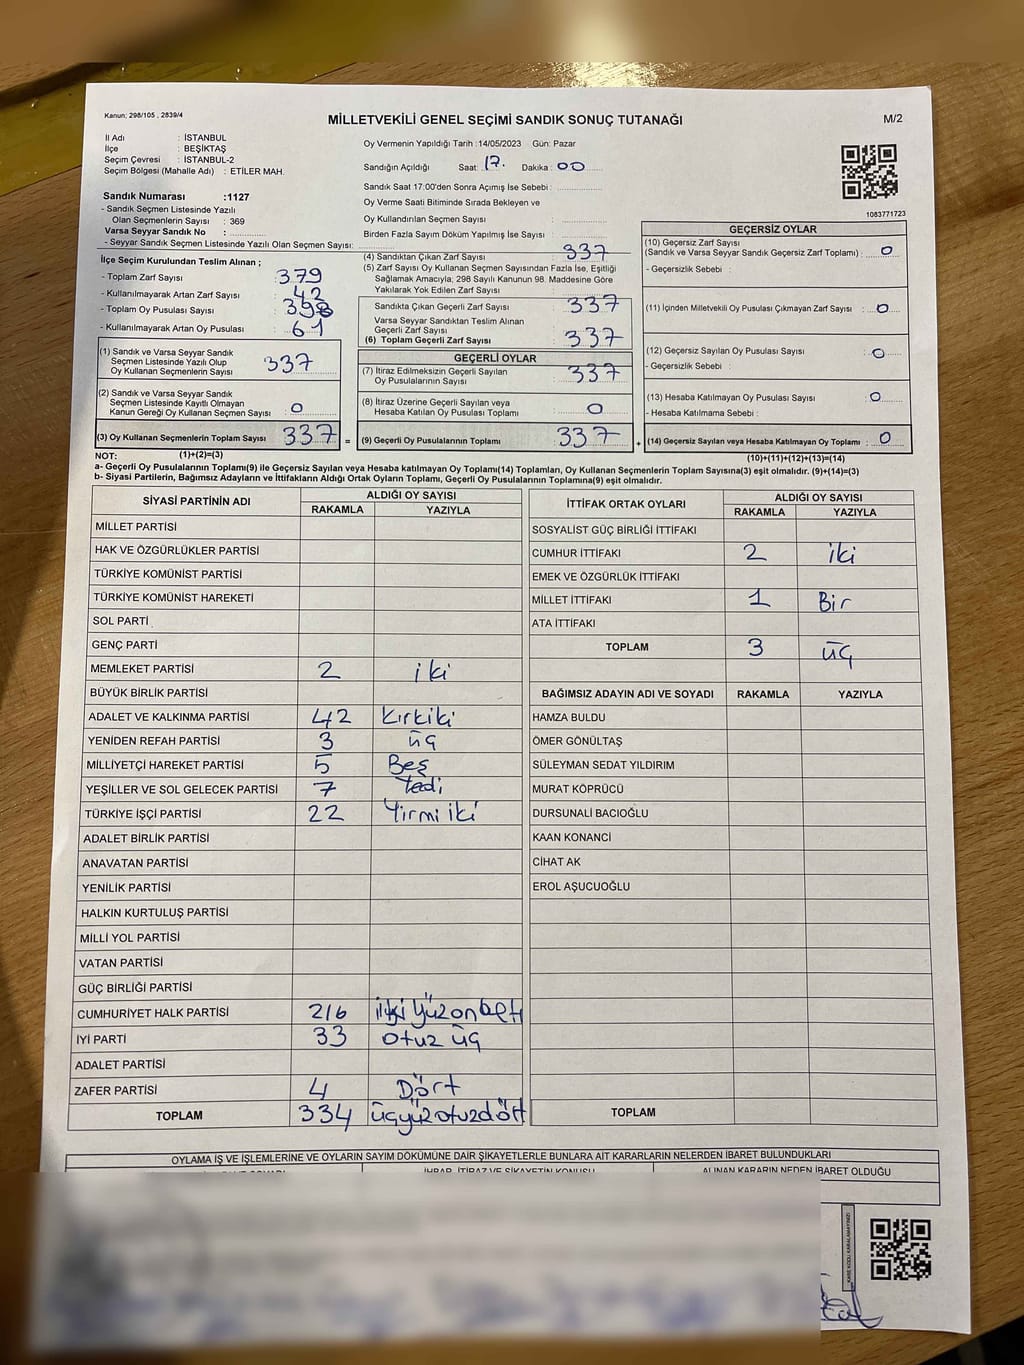 Kanun; 298/105 , 2839/4
MİLLETVEKİLİ GENEL SEÇİMİ SANDIK SONUÇ TUTANAĞI
M/2
İl Adı : İSTANBUL
İlçe : BEŞİKTAŞ
Seçim Çevresi : İSTANBUL-2
Seçim Bölgesi (Mahalle Adı) : ETİLER MAH.
Oy Vermenin Yapıldığı Tarih :14/05/2023 Gün: Pazar
Sandığın Açıldığı Saat: 17. Dakika: 00
Sandık Saat 17:00'den Sonra Açımış İse Sebebi :
Oy Verme Saati Bitiminde Sırada Bekleyen ve
Oy Kullandırılan Seçmen Sayısı :
Birden Fazla Sayım Döküm Yapılmış İse Sayısı :
1083771723
Sandık Numarası :1127
- Sandık Seçmen Listesinde Yazılı
Olan Seçmenlerin Sayısı : 369
Varsa Seyyar Sandık No :
- Seyyar Sandık Seçmen Listesinde Yazılı Olan Seçmen Sayısı:
İlçe Seçim Kurulundan Teslim Alınan ;
- Toplam Zarf Sayısı : 379
- Kullanılmayarak Artan Zarf Sayısı : 42
- Toplam Oy Pusulası Sayısı :
- Kullanılmayarak Artan Oy Pusulası : 61
(1) Sandık ve Varsa Seyyar Sandık
Seçmen Listesinde Yazılı Olup
Oy Kullanan Seçmenlerin Sayısı : 337
(2) Sandık ve Varsa Seyyar Sandık
Seçmen Listesinde Kayıtlı Olmayan
Kanun Gereği Oy Kullanan Seçmen Sayısı : 0
(3) Oy Kullanan Seçmenlerin Toplam Sayısı : 337 =
(4) Sandıktan Çıkan Zarf Sayısı : 337
(5) Zarf Sayısı Oy Kullanan Seçmen Sayısından Fazla İse, Eşitliği
Sağlamak Amacıyla; 298 Sayılı Kanunun 98. Maddesine Göre
Yakılarak Yok Edilen Zarf Sayısı :
Sandıkta Çıkan Geçerli Zarf Sayısı : 337
Varsa Seyyar Sandıktan Teslim Alınan
Geçerli Zarf Sayısı :
(6) Toplam Geçerli Zarf Sayısı : 337
GEÇERLİ OYLAR
(7) İtiraz Edilmeksizin Geçerli Sayılan
Oy Pusulalarının Sayısı : 337
(8) İtiraz Üzerine Geçerli Sayılan veya
Hesaba Katılan Oy Pusulası Toplamı : 0
(9) Geçerli Oy Pusulalarının Toplamı : 337 +
GEÇERSİZ OYLAR
(10) Geçersiz Zarf Sayısı
(Sandık ve Varsa Seyyar Sandık Geçersiz Zarf Toplamı) : 0
- Geçersizlik Sebebi :
(11) İçinden Milletvekili Oy Pusulası Çıkmayan Zarf Sayısı : 0
(12) Geçersiz Sayılan Oy Pusulası Sayısı : 0
- Geçersizlik Sebebi :
(13) Hesaba Katılmayan Oy Pusulası Sayısı : 0
- Hesaba Katılmama Sebebi :
(14) Geçersiz Sayılan veya Hesaba Katılmayan Oy Toplamı : 0
NOT: (1)+(2)=(3)
(10)+(11)+(12)+(13)=(14)
a- Geçerli Oy Pusulalarının Toplamı(9) ile Geçersiz Sayılan veya Hesaba katılmayan Oy Toplamı(14) Toplamları, Oy Kullanan Seçmenlerin Toplam Sayısına(3) eşit olmalıdır. (9)+(14)=(3)
b- Siyasi Partilerin, Bağımsız Adayların ve İttifakların Aldığı Ortak Oyların Toplamı, Geçerli Oy Pusulalarının Toplamına(9) eşit olmalıdır.
SİYASİ PARTİNİN ADI ALDIĞI OY SAYISI
RAKAMLA YAZIYLA
MİLLET PARTİSİ
HAK VE ÖZGÜRLÜKLER PARTİSİ
TÜRKİYE KOMÜNİST PARTİSİ
TÜRKİYE KOMÜNİST HAREKETİ
SOL PARTİ
GENÇ PARTİ
MEMLEKET PARTİSİ 2 iki
BÜYÜK BİRLİK PARTİSİ
ADALET VE KALKINMA PARTİSİ 42 kırkiki
YENİDEN REFAH PARTİSİ 3 üç
MİLLİYETÇİ HAREKET PARTİSİ 5 Beş
YEŞİLLER VE SOL GELECEK PARTİSİ 7 Yedi
TÜRKİYE İŞÇİ PARTİSİ 22 Yirmi iki
ADALET BİRLİK PARTİSİ
ANAVATAN PARTİSİ
YENİLİK PARTİSİ
HALKIN KURTULUŞ PARTİSİ
MİLLİ YOL PARTİSİ
VATAN PARTİSİ
GÜÇ BİRLİĞİ PARTİSİ
CUMHURİYET HALK PARTİSİ 216 iki yüz onaltı
İYİ PARTİ 33 otuz üç
ADALET PARTİSİ
ZAFER PARTİSİ 4 Dört
TOPLAM 334 üçyüzotuzdört
İTTİFAK ORTAK OYLARI ALDIĞI OY SAYISI
RAKAMLA YAZIYLA
SOSYALİST GÜÇ BİRLİĞİ İTTİFAKI
CUMHUR İTTİFAKI 2 iki
EMEK VE ÖZGÜRLÜK İTTİFAKI
MİLLET İTTİFAKI 1 Bir
ATA İTTİFAKI
TOPLAM 3 üç
BAĞIMSIZ ADAYIN ADI VE SOYADI RAKAMLA YAZIYLA
HAMZA BULDU
ÖMER GÖNÜLTAŞ
SÜLEYMAN SEDAT YILDIRIM
MURAT KÖPRÜCÜ
DURSUNALİ BACIOĞLU
KAAN KONANCİ
CİHAT AK
EROL AŞUCUOĞLU
TOPLAM
OYLAMA İŞ VE İŞLEMLERİNE VE OYLARIN SAYIM DÖKÜMÜNE DAİR ŞİKAYETLERLE BUNLARA AİT KARARLARIN NELERDEN İBARET BULUNDUKLARI
İHBAR, İTİRAZ VE ŞİKAYETİN KONUSU ALINAN KARARIN NEDEN İBARET OLDUĞU
KARE KODU KARALAMAYINIZ!